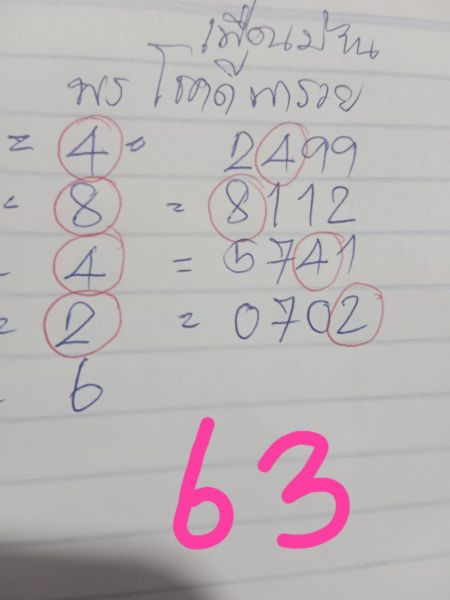 เพื่อนบ้าน
พร โชคดี พารวย
= 4 = 2499
= 8 = 8112
= 4 = 5741
= 2 = 0702
= 6
63